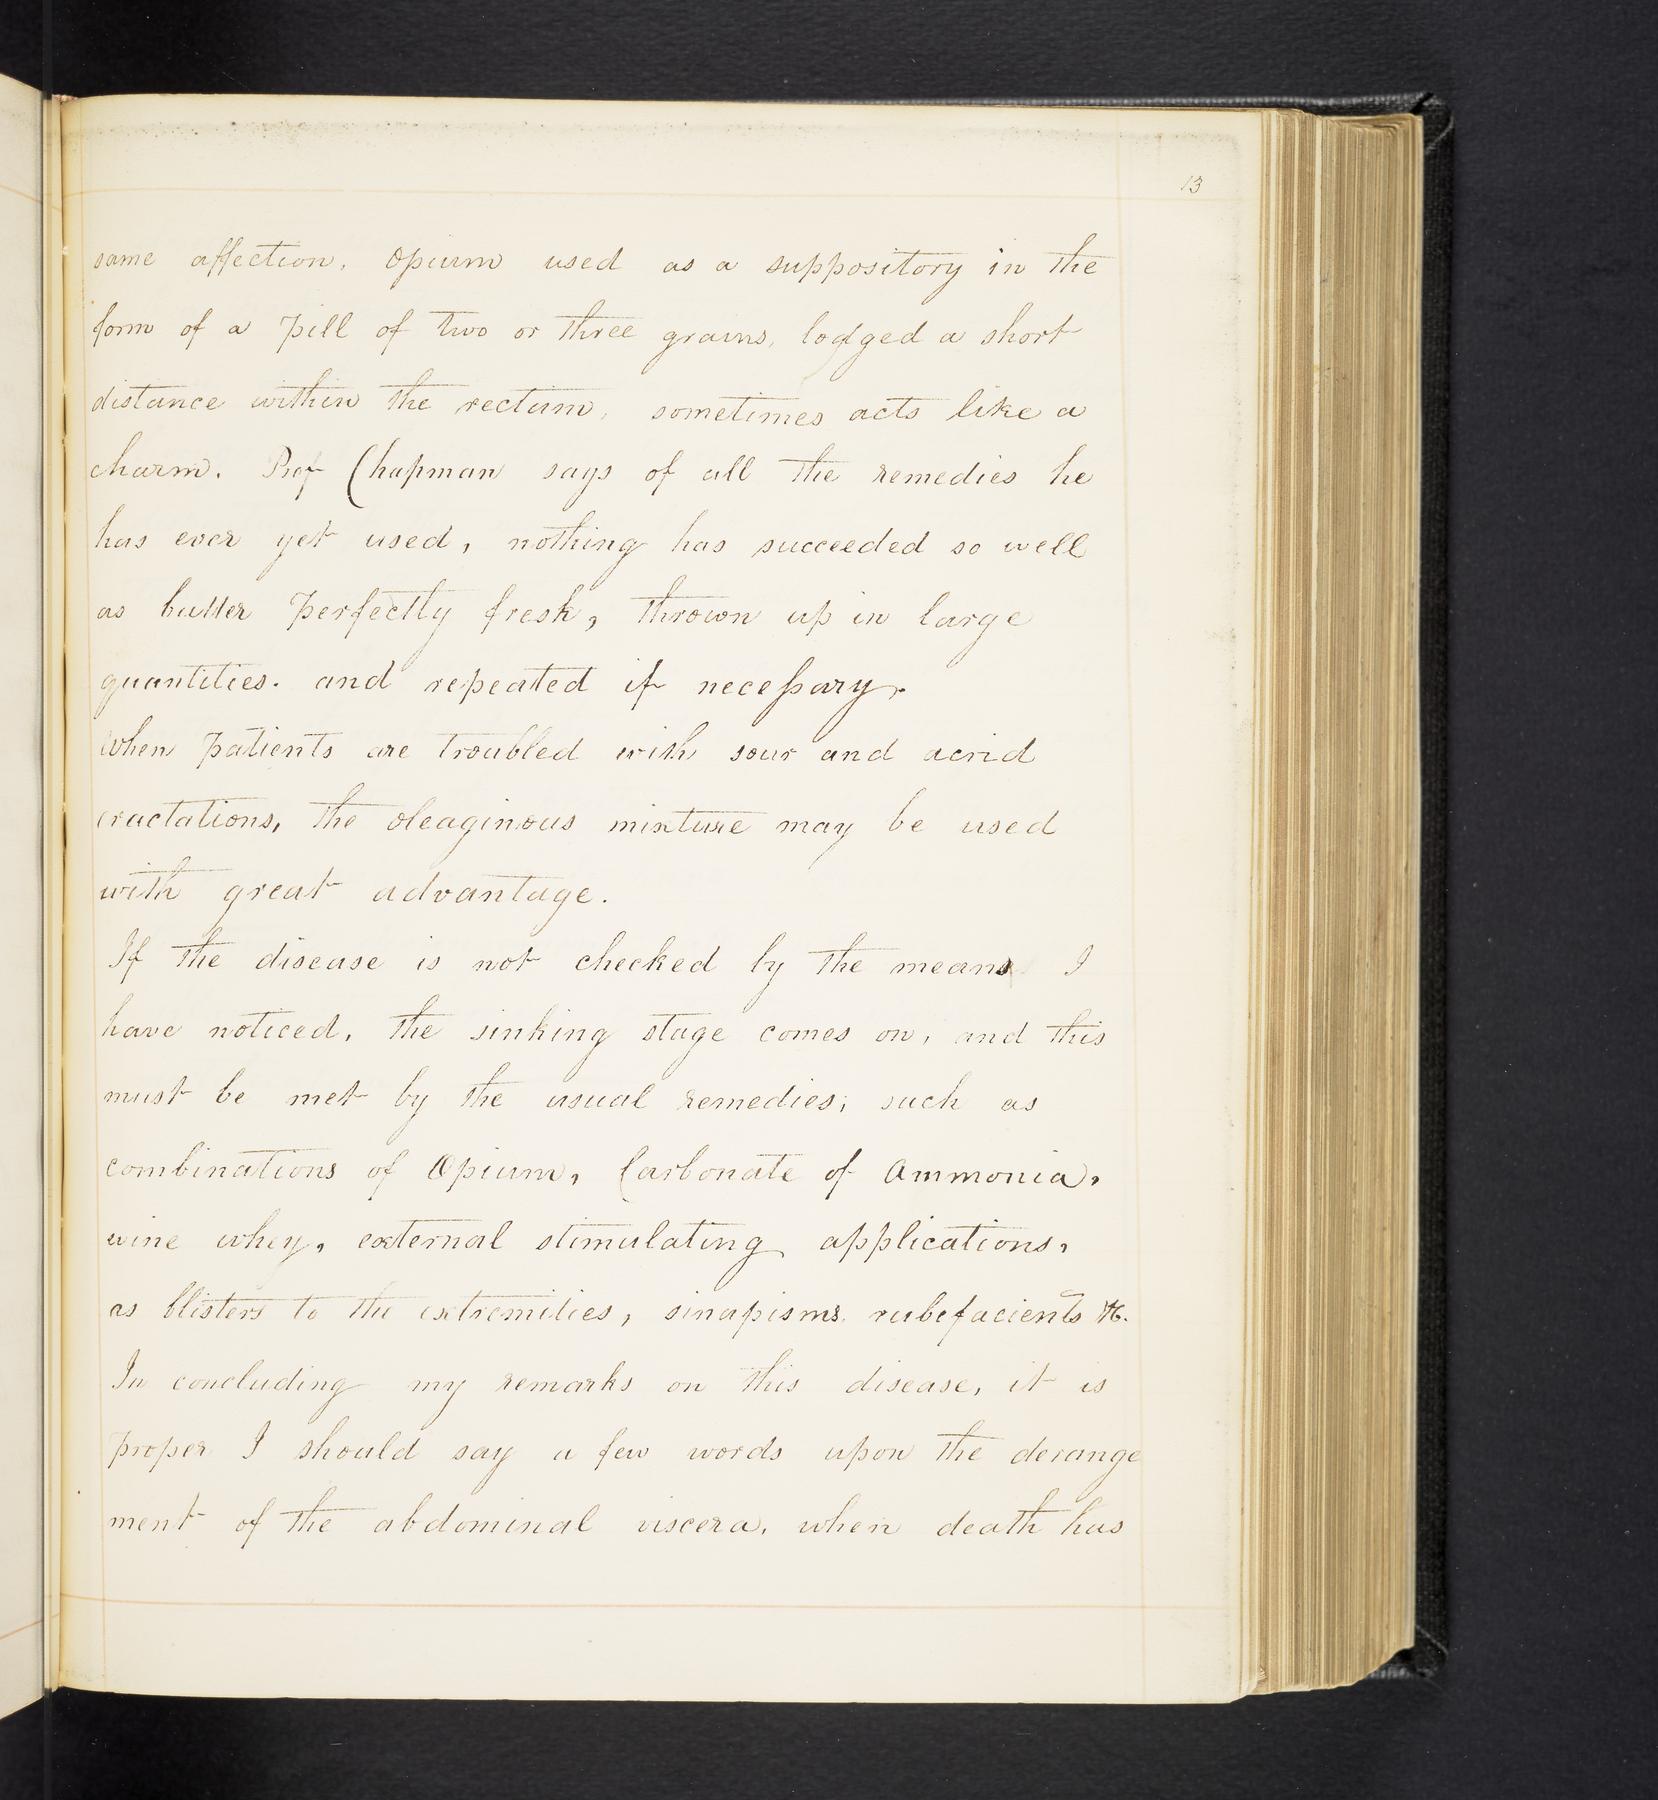 13
same affection. Opium used as a suppository in the
form of a pill of two or three grains, lodged a short
distance within the rectum, sometimes acts like a
charm. Prof Chapman says of all the remedies he
has ever yet used, nothing has succeeded so well
as butter perfectly fresh, thrown up in large
quantities. and repeated if necessary.
When patients are troubled with sour and acrid
eructations, the oleaginous mixture may be used
with great advantage.
If the disease is not checked by the means I
have noticed, the sinking stage comes on, and this
must be met by the usual remedies; such as
combinations of Opium, Carbonate of Ammonia,
wine whey, external stimulating applications,
as blisters to the extremities, sinapisms, rubefacients &c.
In concluding my remarks on this disease, it is
proper I should say a few words upon the derange
ment of the abdominal viscera, when death has